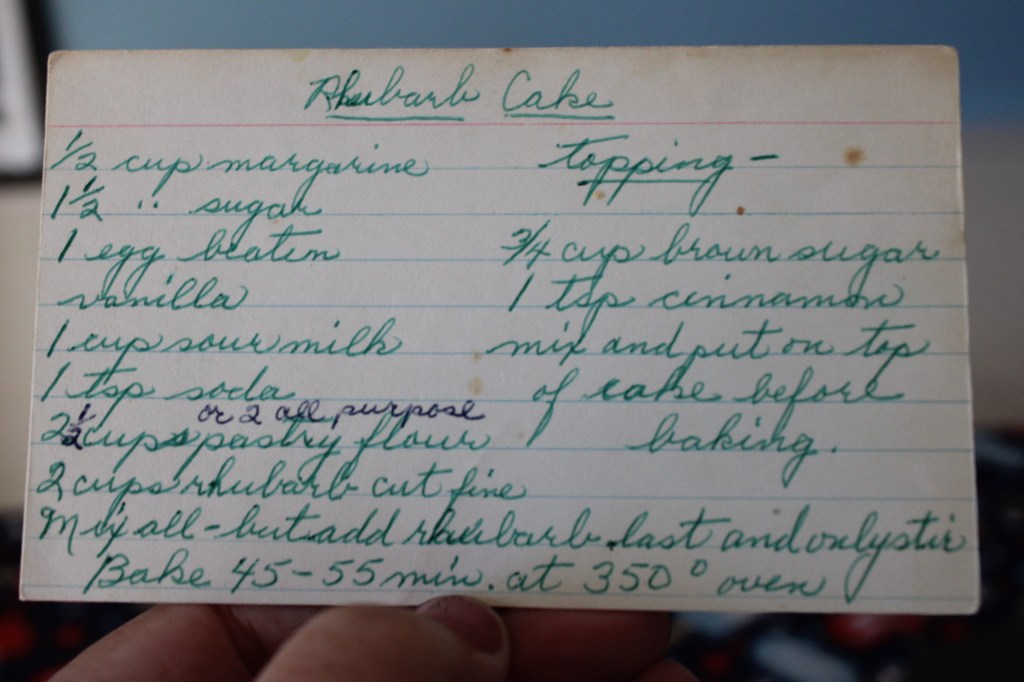 Rhubarb Cake
1/2 cup margarine
1 1/2 " sugar
1 egg beaten
vanilla
1 cup sour milk
1 tsp soda
or 2 all purpose
2 1/2 cups pastry flour
2 cups rhubarb cut fine
Mix all - but add rhubarb last and only stir
Bake 45-55 min. at 350° oven
topping -
3/4 cup brown sugar
1 tsp cinnamon
mix and put on top
of cake before
baking.